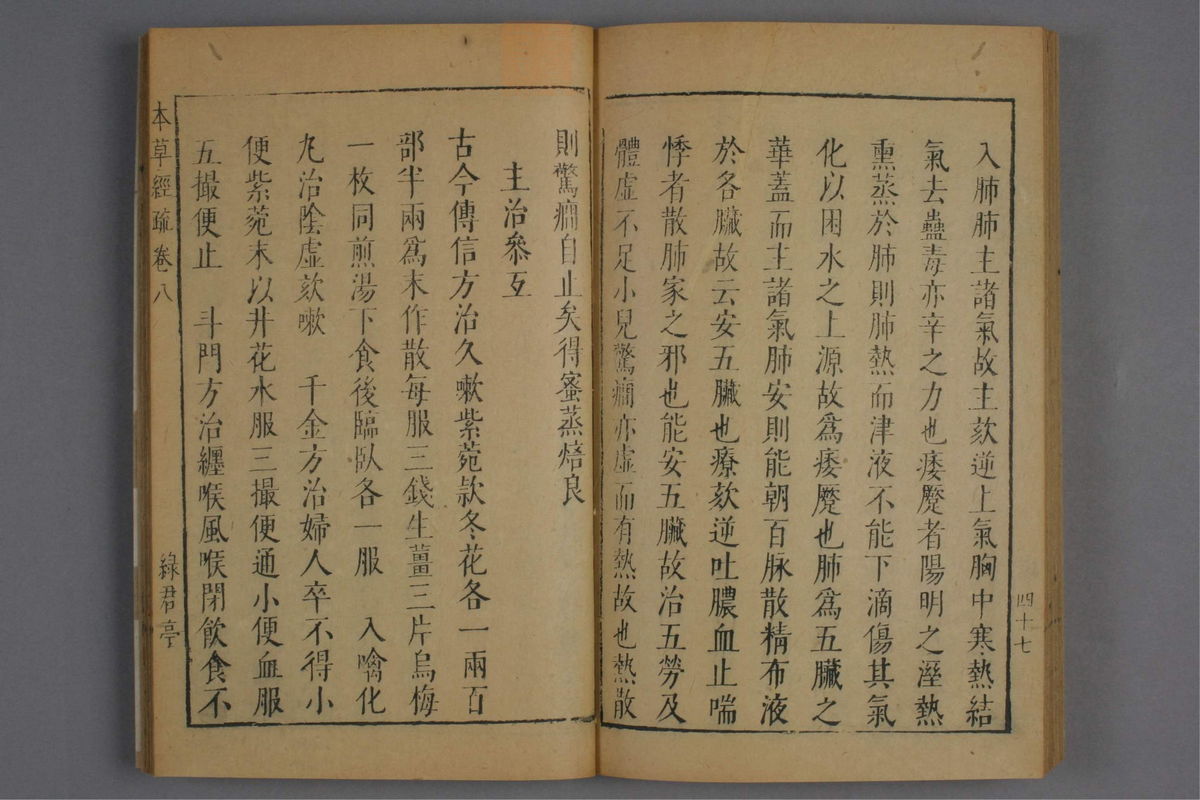 入肺肺主諸氣故主欬逆上氣胸中寒熱結
氣去蠱毒亦辛之力也痿躄者陽明之溼熱
熏蒸於肺則肺熱而津液不能下滴傷其氣
化以困水之上源故爲痿躄也肺爲五臟之
華蓋而主諸氣肺安則能朝百脉散精布液
於各臟故云安五臟也療欬逆吐膿血止喘
悸者散肺家之邪也能安五臟故治五勞及
體虛不足小兒驚癎亦虛而有熱故也熱散
四十七
則驚癎自止矣得蜜蒸焙良
主治叅互
古今傳信方治久嗽紫菀款冬花各一兩百
部半兩爲末作散每服三錢生薑三片烏梅
一枚同煎湯下食後臨臥各一服　入噙化
丸治陰虛欬嗽　千金方治婦人卒不得小
便紫菀末以井花水服三撮便通小便血服
五撮便止　斗門方治纏喉風喉閉飲食不
本草經疏卷八
綠君亭